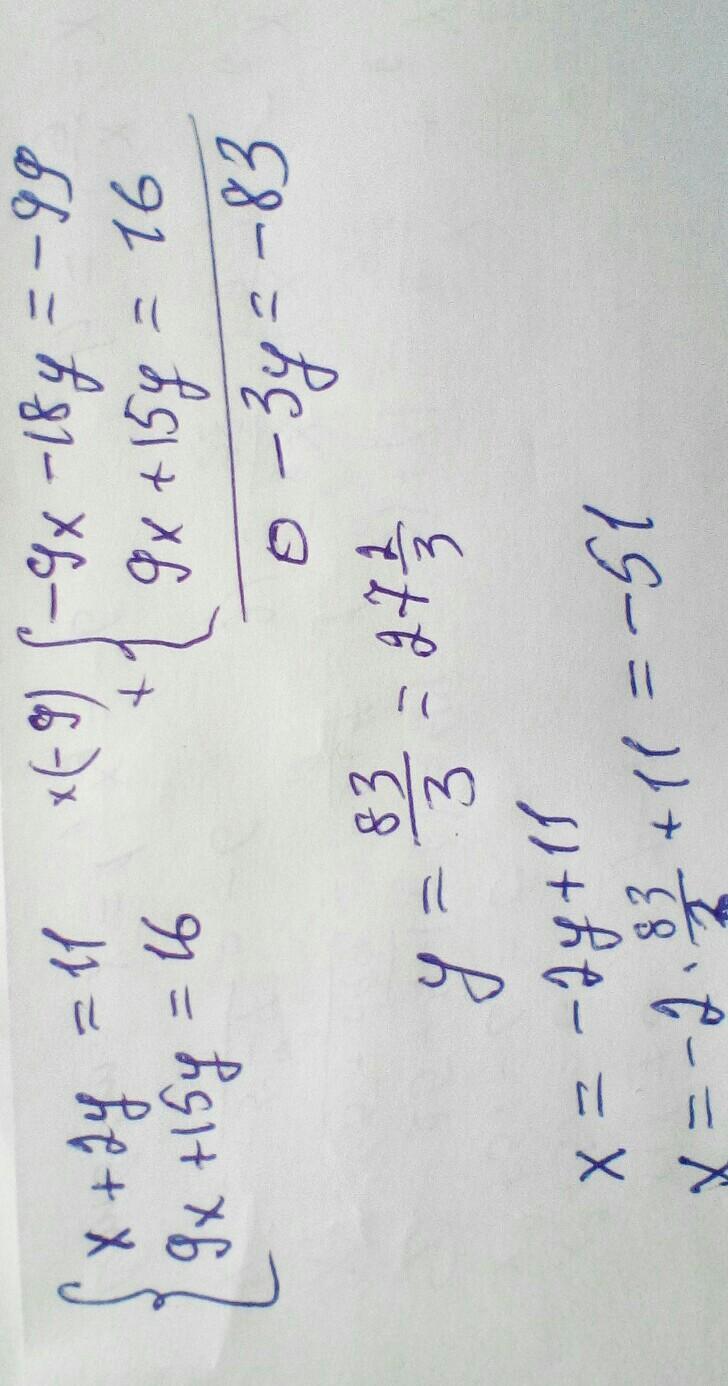 x + 2y = 11 ×(-9) -9x - 18y = -99
9x + 15y = 16 + 9x + 15y = 16
0 - 3y = -83
y = 83/3 = 27 2/3
x = -2y + 11
x = -2 · 83/ + 11 = -51